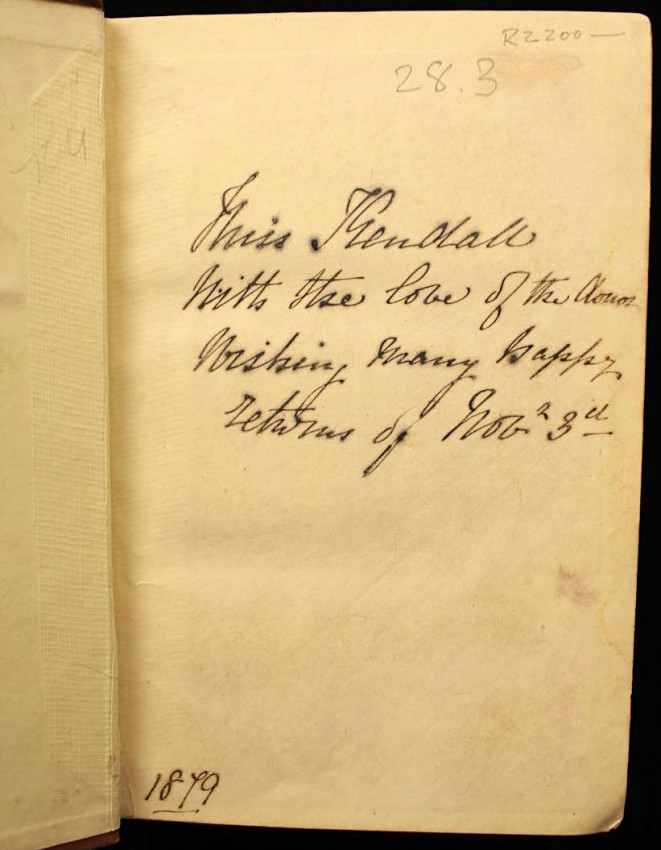 R2200—
28.3
Miss Kendall
With the love of the donor
Wishing many happy
returns of Novr 3d
1879